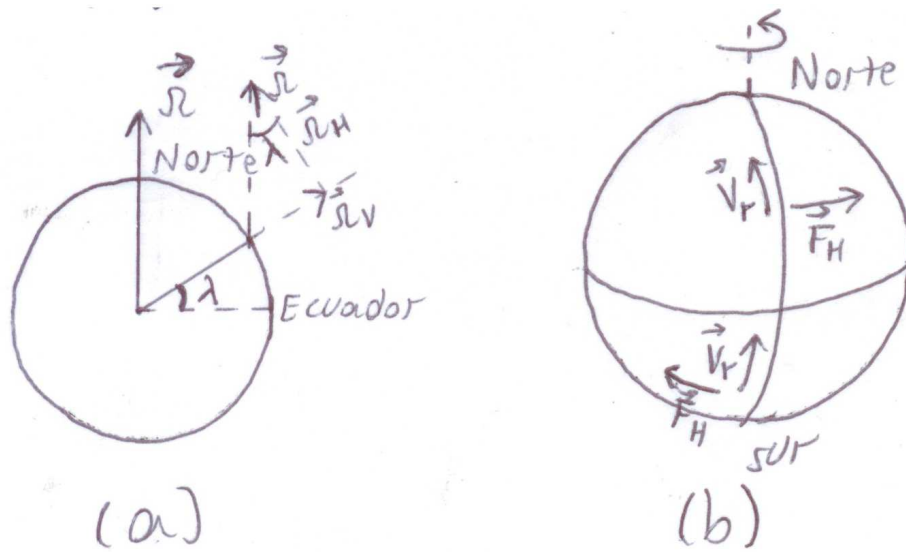 Ω⃗
Norte
Ω⃗
Ω⃗H
λ
Ω⃗V
λ
Ecuador
(a)
Norte
V⃗r
F⃗H
V⃗r
F⃗H
sur
(b)